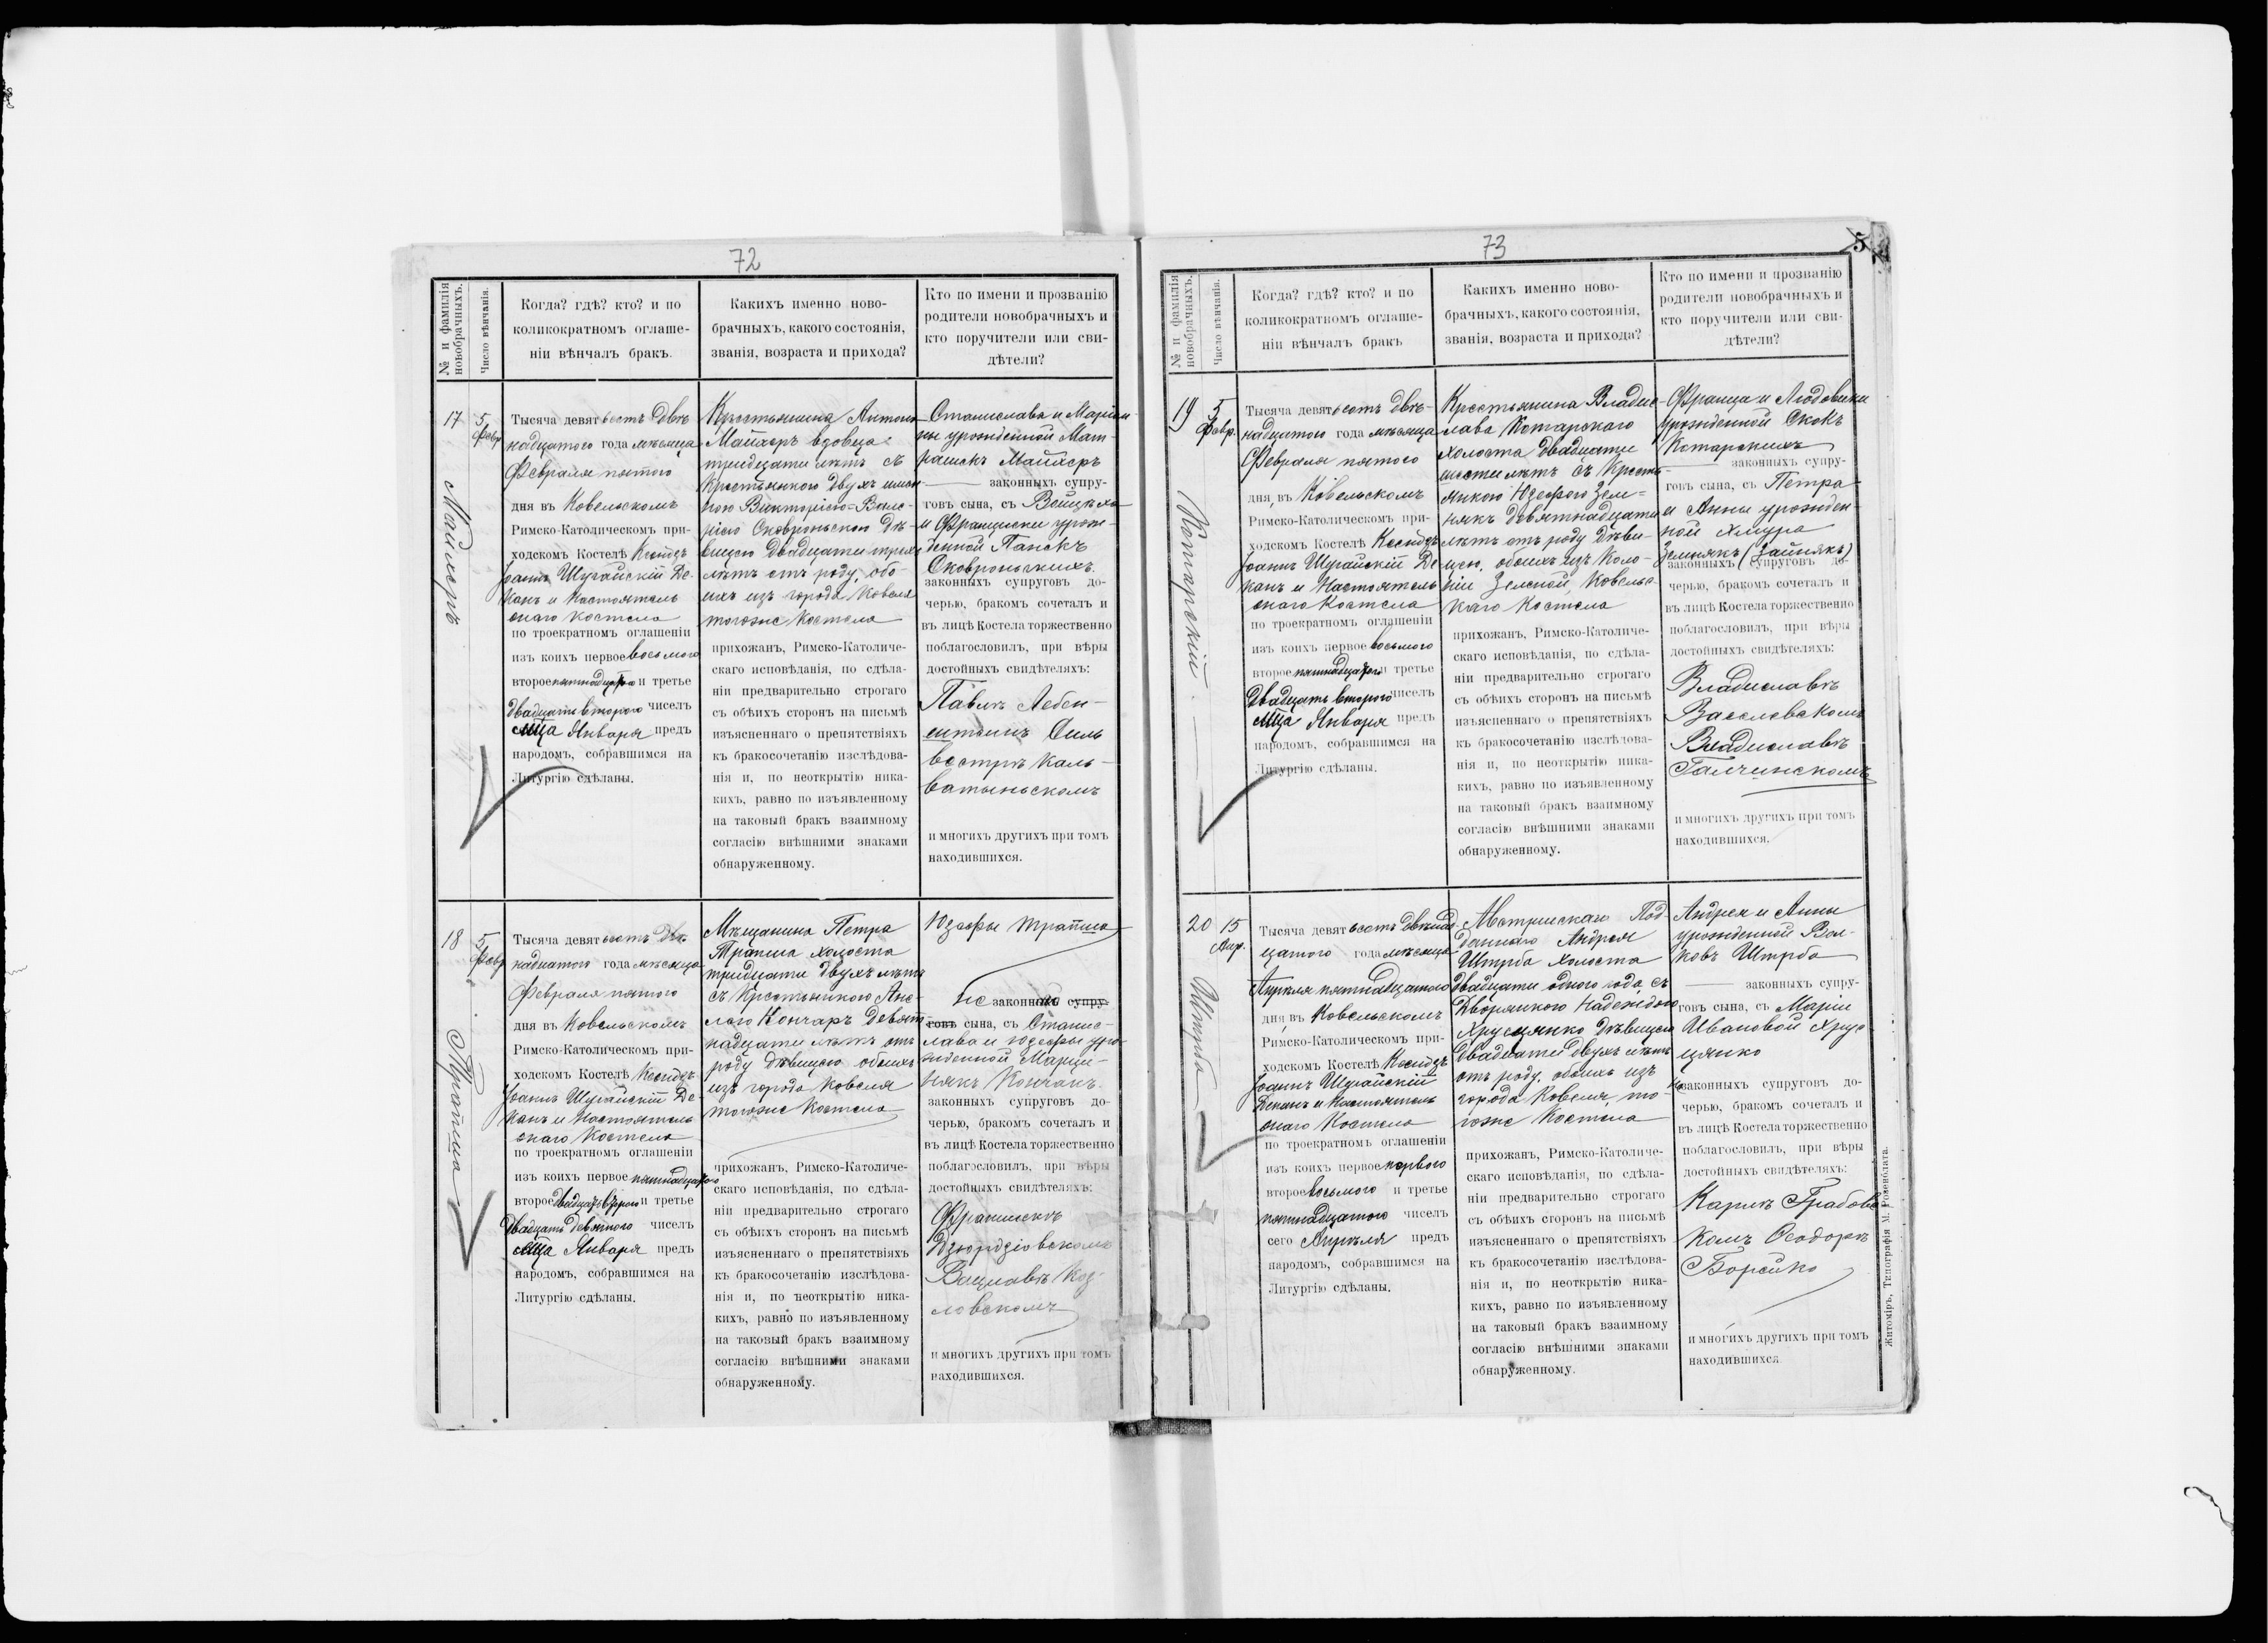 72
№ и фамилія новобрачныхъ.
Число вѣнчанія.
Когда? гдѣ? кто? и по
коликократномъ оглаше-
ніи вѣнчалъ бракъ.
Какихъ именно ново-
брачныхъ, какого состоянія,
званія, возраста и прихода?
Кто по имени и прозванію
родители новобрачныхъ и
кто поручители или сви-
дѣтели?
17
5
Февр
Майхеръ
Тысяча девятьсотъ двѣ
надцатого года мѣсяца
Февраля пятого
дня въ Ковельскомъ
Римско-Католическомъ при-
ходскомъ Костелѣ Ксендзъ
Іоаннъ Шугайскій Де-
канъ и Настоятель
онаго Костела
по троекратномъ оглашеніи
изъ коихъ первое восьмого
второе пятнадцатого и третье
двадцать второго чиселъ
мца Января предъ
народомъ, собравшимся на
Литургію сдѣланы.
Крестьянина Антона
Майхеръ вдовца
тридцати лѣтъ съ
Крестьянкою двухъ имен
ною Викторіею-Вале-
ріею Сковроньскою дѣ-
вицею двадцати трехъ
лѣтъ отъ роду, обо-
ихъ изъ города Ковеля
тогоже Костела
прихожанъ, Римско-Католиче-
скаго исповѣданія, по сдѣла-
ніи предварительно строгаго
съ обѣихъ сторонъ на письмѣ
изъясненнаго о препятствіяхъ
къ бракосочетанію изслѣдова-
нія и, по неоткрытію ника-
кихъ, равно по изъявленному
на таковый бракъ взаимному
согласію внѣшними знаками
обнаруженному.
Станислава и Маріан-
ны урожденной Мат-
Майхеръ
законныхъ супру-
говъ сына, съ Войцѣха
и Францишки урож-
денной Панекъ
Сковроньскихъ
законныхъ супруговъ до-
черью, бракомъ сочеталъ и
въ лицѣ Костела торжественно
поблагословилъ, при вѣры
достойныхъ свидѣтеляхъ:
Павлѣ Лебен-
Силь
вестрѣ Каль-
ватыньскомъ
и многихъ другихъ при томъ
находившихся.
18
5
Февр
Трапша
Тысяча девятьсотъ двѣ
надцатого года мѣсяца
Февраля пятого
дня въ Ковельскомъ
Римско-Католическомъ при-
ходскомъ Костелѣ Ксендзъ
Іоаннъ Шугайскій Де-
канъ и Настоятель
онаго Костела
по троекратномъ оглашеніи
изъ коихъ первое пятнадцатого
второе двадцать второго и третье
двадцать девятого чиселъ
мца Января предъ
народомъ, собравшимся на
Литургію сдѣланы.
Мѣщанина Петра
Трапша холоста
тридцати двухъ лѣтъ
съ Крестьянкою Анѣ-
лею Кончаръ девят-
надцати лѣтъ отъ
роду дѣвицею обоихъ
изъ города Ковеля
тогоже Костела
прихожанъ, Римско-Католиче-
скаго исповѣданія, по сдѣла-
ніи предварительно строгаго
съ обѣихъ сторонъ на письмѣ
изъясненнаго о препятствіяхъ
къ бракосочетанію изслѣдова-
нія и, по неоткрытію ника-
кихъ, равно по изъявленному
на таковый бракъ взаимному
согласію внѣшними знаками
обнаруженному.
Юзефы Трапша
не законнаго супру-
говъ сына, съ Станис-
лава и Юзефы уро-
жденной Марци-
някъ
законныхъ супруговъ до-
черью, бракомъ сочеталъ и
въ лицѣ Костела торжественно
поблагословилъ, при вѣры
достойныхъ свидѣтеляхъ:
Францискѣ
Дзюрдзіовскомъ
Вацлавѣ Коз-
ловскомъ
и многихъ другихъ при томъ
находившихся.
73
5
№ и фамилія новобрачныхъ.
Число вѣнчанія.
Когда? гдѣ? кто? и по
коликократномъ оглаше-
ніи вѣнчалъ бракъ
Какихъ именно ново-
брачныхъ, какого состоянія,
званія, возраста и прихода?
Кто по имени и прозванію
родители новобрачныхъ и
кто поручители или сви-
дѣтели?
19
5
Февр.
Котарскій
Тысяча девятьсотъ двѣ-
надцатого года мѣсяца
Февраля пятого
дня въ Ковельскомъ
Римско-Католическомъ при-
ходскомъ Костелѣ Ксендзъ
Іоаннъ Шугайскій Де
канъ и Настоятель
онаго Костела
по троекратномъ оглашеніи
изъ коихъ первое восьмого
второе пятнадцатого и третье
двадцать второго чиселъ
мца Января предъ
народомъ, собравшимся на
Литургію сдѣланы.
Крестьянина Владис-
лава Котарского
холоста двадцати
шести лѣтъ съ Кресть-
янкою Юзефою Зем-
някъ девятнадцати
лѣтъ отъ роду дѣви-
цею, обоихъ изъ Коло-
ніи Зеленой, Ковельс-
каго Костела
прихожанъ, Римско-Католиче-
скаго исповѣданія, по сдѣла-
ніи предварительно строгаго
съ обѣихъ сторонъ на письмѣ
изъясненнаго о препятствіяхъ
къ бракосочетанію изслѣдова-
нія и, по неоткрытію ника-
кихъ, равно по изъявленному
на таковый бракъ взаимному
согласію внѣшними знаками
обнаруженному.
Франца и Людовики
урожденной Скокъ
Котарскихъ
законныхъ супру-
говъ сына, съ Петра
и Анны урожден-
ной Хмура
Земнякъ (Займякъ)
законныхъ супруговъ до-
черью, бракомъ сочеталъ и
въ лицѣ Костела торжественно
поблагословилъ, при вѣры
достойныхъ свидѣтеляхъ:
Владиславѣ
Владиславѣ
Галчинскомъ
и многихъ другихъ при томъ
находившихся.
20
15
Апр.
Штрба
Тысяча девятьсотъ двѣнад-
цатого года мѣсяца
Апрѣля пятнадцатого
дня въ Ковельскомъ
Римско-Католическомъ при-
ходскомъ Костелѣ Ксендзъ
Іоаннъ Шугайскій
Деканъ и Настоятель
онаго Костела
по троекратномъ оглашеніи
изъ коихъ первое первого
второе восьмого и третье
пятнадцатого чиселъ
сего Апрѣля предъ
народомъ, собравшимся на
Литургію сдѣланы.
Австрійскаго Под-
даннаго Андрея
Штрба холоста
двадцати одного года съ
Дворянкою Надеждою
Хрусцянко дѣвицею
двадцати двухъ лѣтъ
отъ роду, обоихъ изъ
города Ковеля, то-
гоже Костела
прихожанъ, Римско-Католиче-
скаго исповѣданія, по сдѣла-
ніи предварительно строгаго
съ обѣихъ сторонъ на письмѣ
изъясненнаго о препятствіяхъ
къ бракосочетанію изслѣдова-
нія и, по неоткрытію ника-
кихъ, равно по изъявленному
на таковый бракъ взаимному
согласію внѣшними знаками
обнаруженному.
Андрея и Анны
урожденной Вол-
ковъ Штрба
законныхъ супру-
говъ сына, съ Маріи
Ивановой Хрус
цянко
незаконныхъ супруговъ до-
черью, бракомъ сочеталъ и
въ лицѣ Костела торжественно
поблагословилъ, при вѣры
достойныхъ свидѣтеляхъ:
Карлѣ Грабовс
комъ Ѳеодорѣ
Борейко
и многихъ другихъ при томъ
находившихся
Житоміръ, Типографія М. Розенблата.